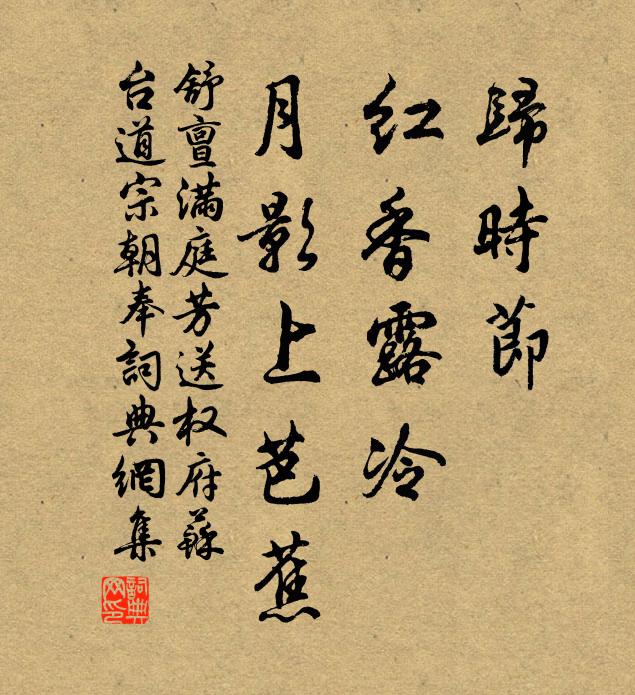 歸時節
紅香露冷
月影上芭蕉
舒亶滿庭芳送权府蘇
台道宗朝奉詞典網集
詞典網印